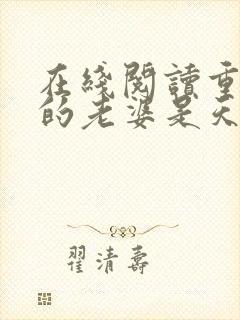 在綫閱讀重
的老婆是天
翟清壽